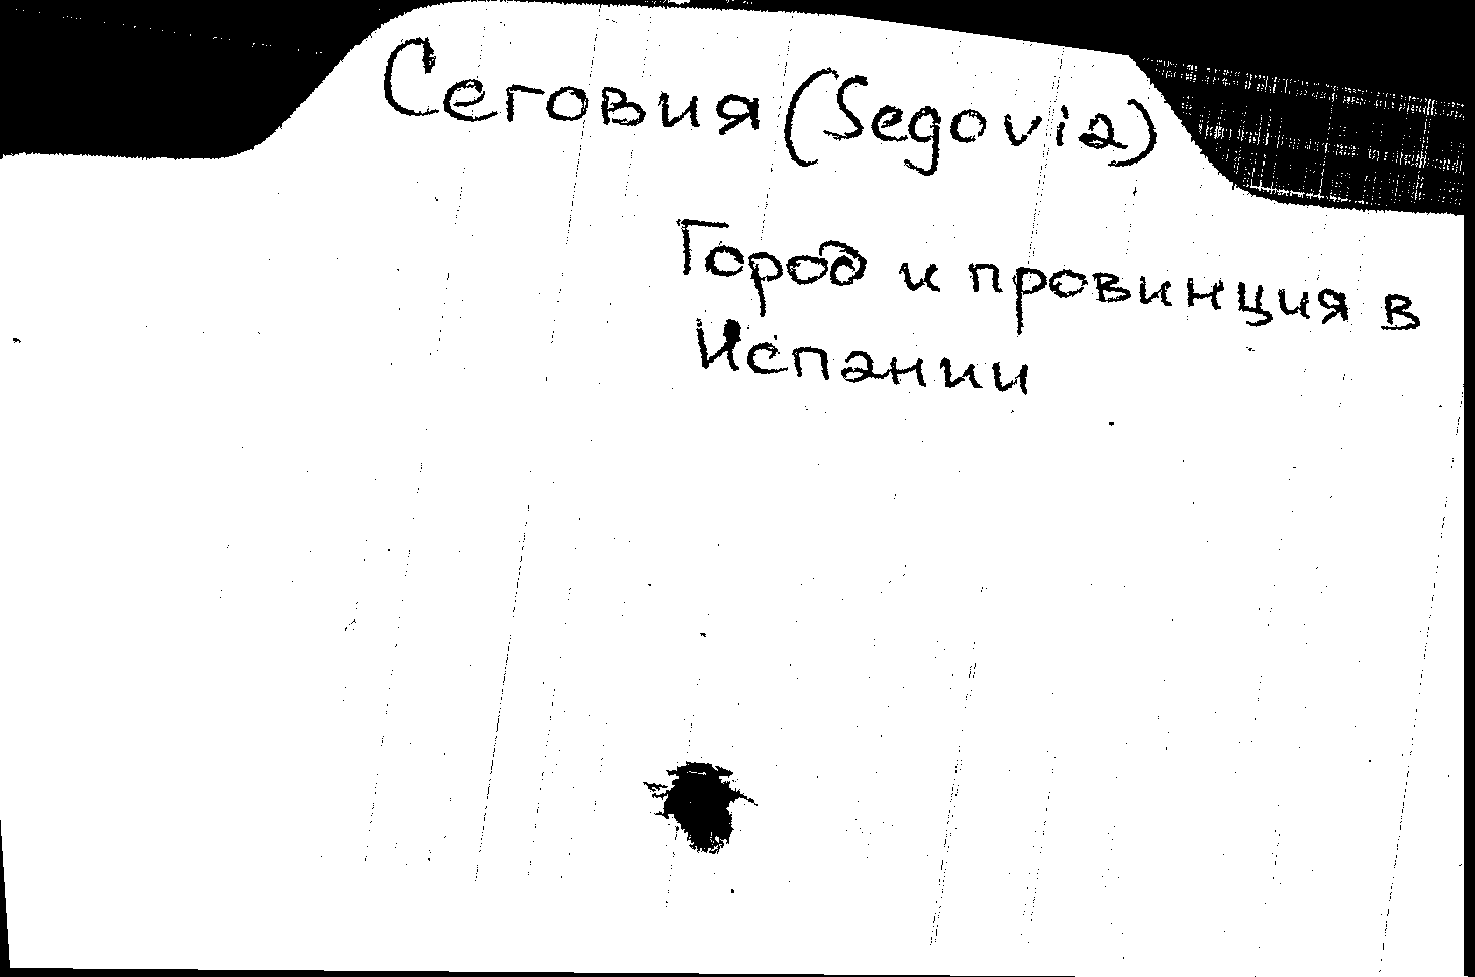 Сеговия (Segovia)
Город и провинция в
Испании